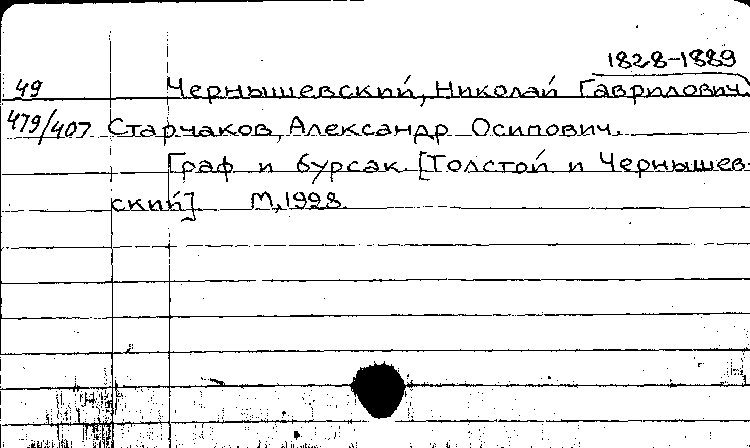 1828-1889
49 Чернышевский, Николай Гаврилович.
479/407 Старчаков, Александр Осипович.
Граф и бурсак. [Толстой и Чернышев-
ский]. М, 1928.